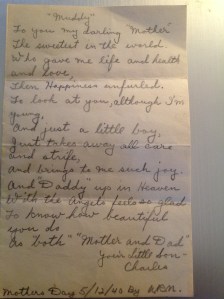 "Muddy"
To you my darling "Mother"
The sweetest in the world.
Who gave me life and health
and love,
Then Happiness unfurled.
To look at you, although I'm
young,
And just a little boy,
Just takes away all care
and strife,
And brings to me such joy.
And "Daddy" up in Heaven
With the angels feels so glad
To know how beautiful
you do
As both "Mother and Dad"
Your Little Son-
Charles
Mothers Day 5/12/40 by